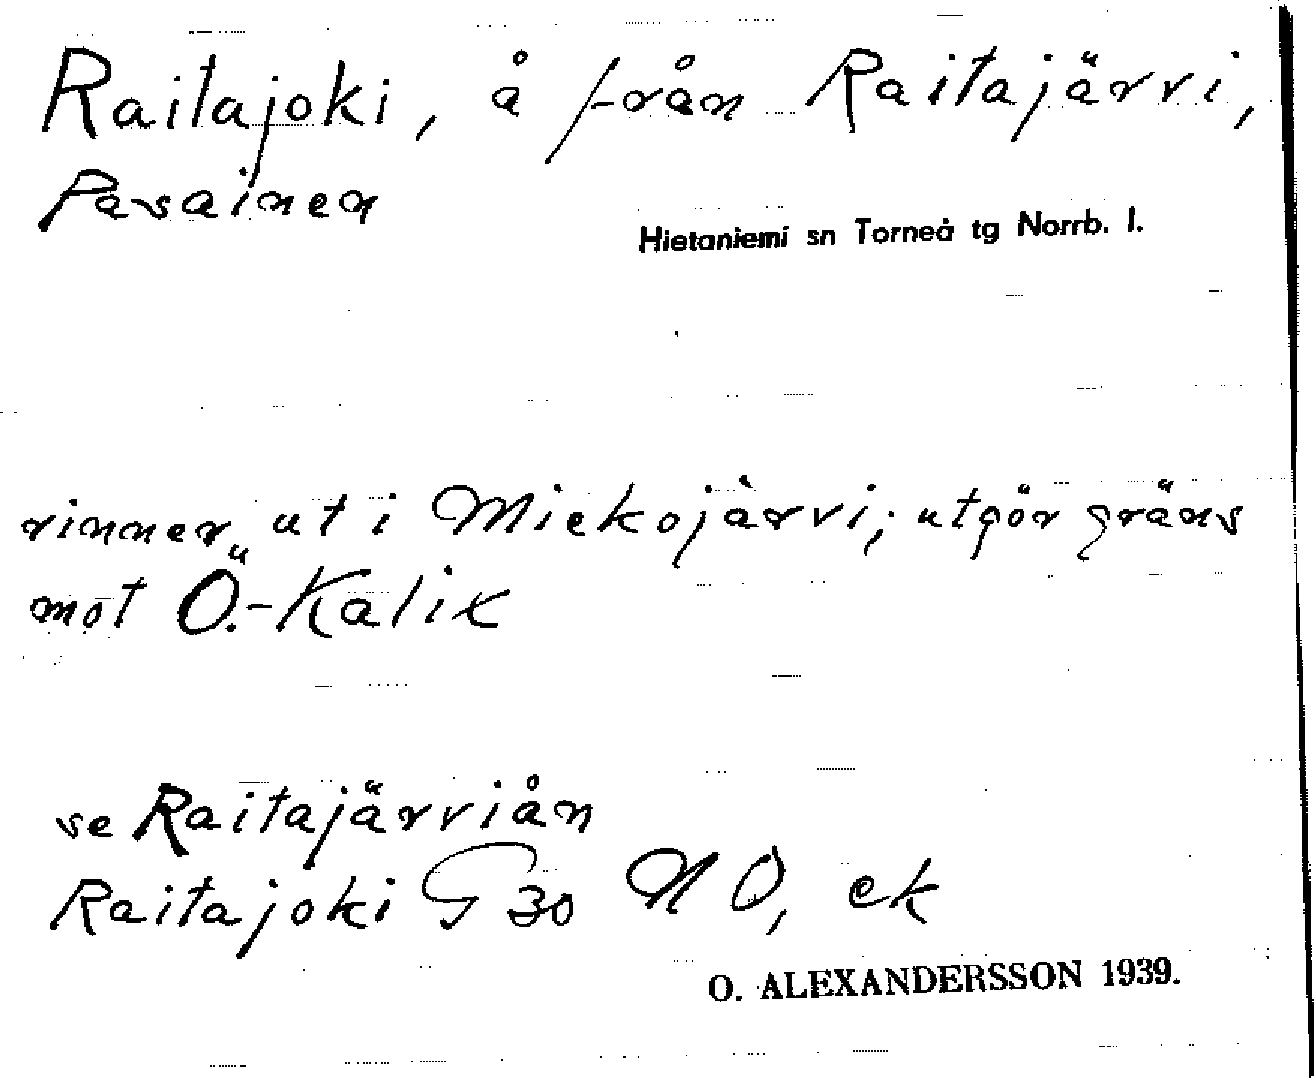 Raitajoki, å från Raitajärvi,
Pasainen
Hietaniemi sn Torneå tg Norrb. l.
rinner ut i Miekojärvi; utgör gräns
mot Ö.-Kalix
se Raitajärviån
Raitajoki G 30 NO, ek
O. ALEXANDERSSON 1939.